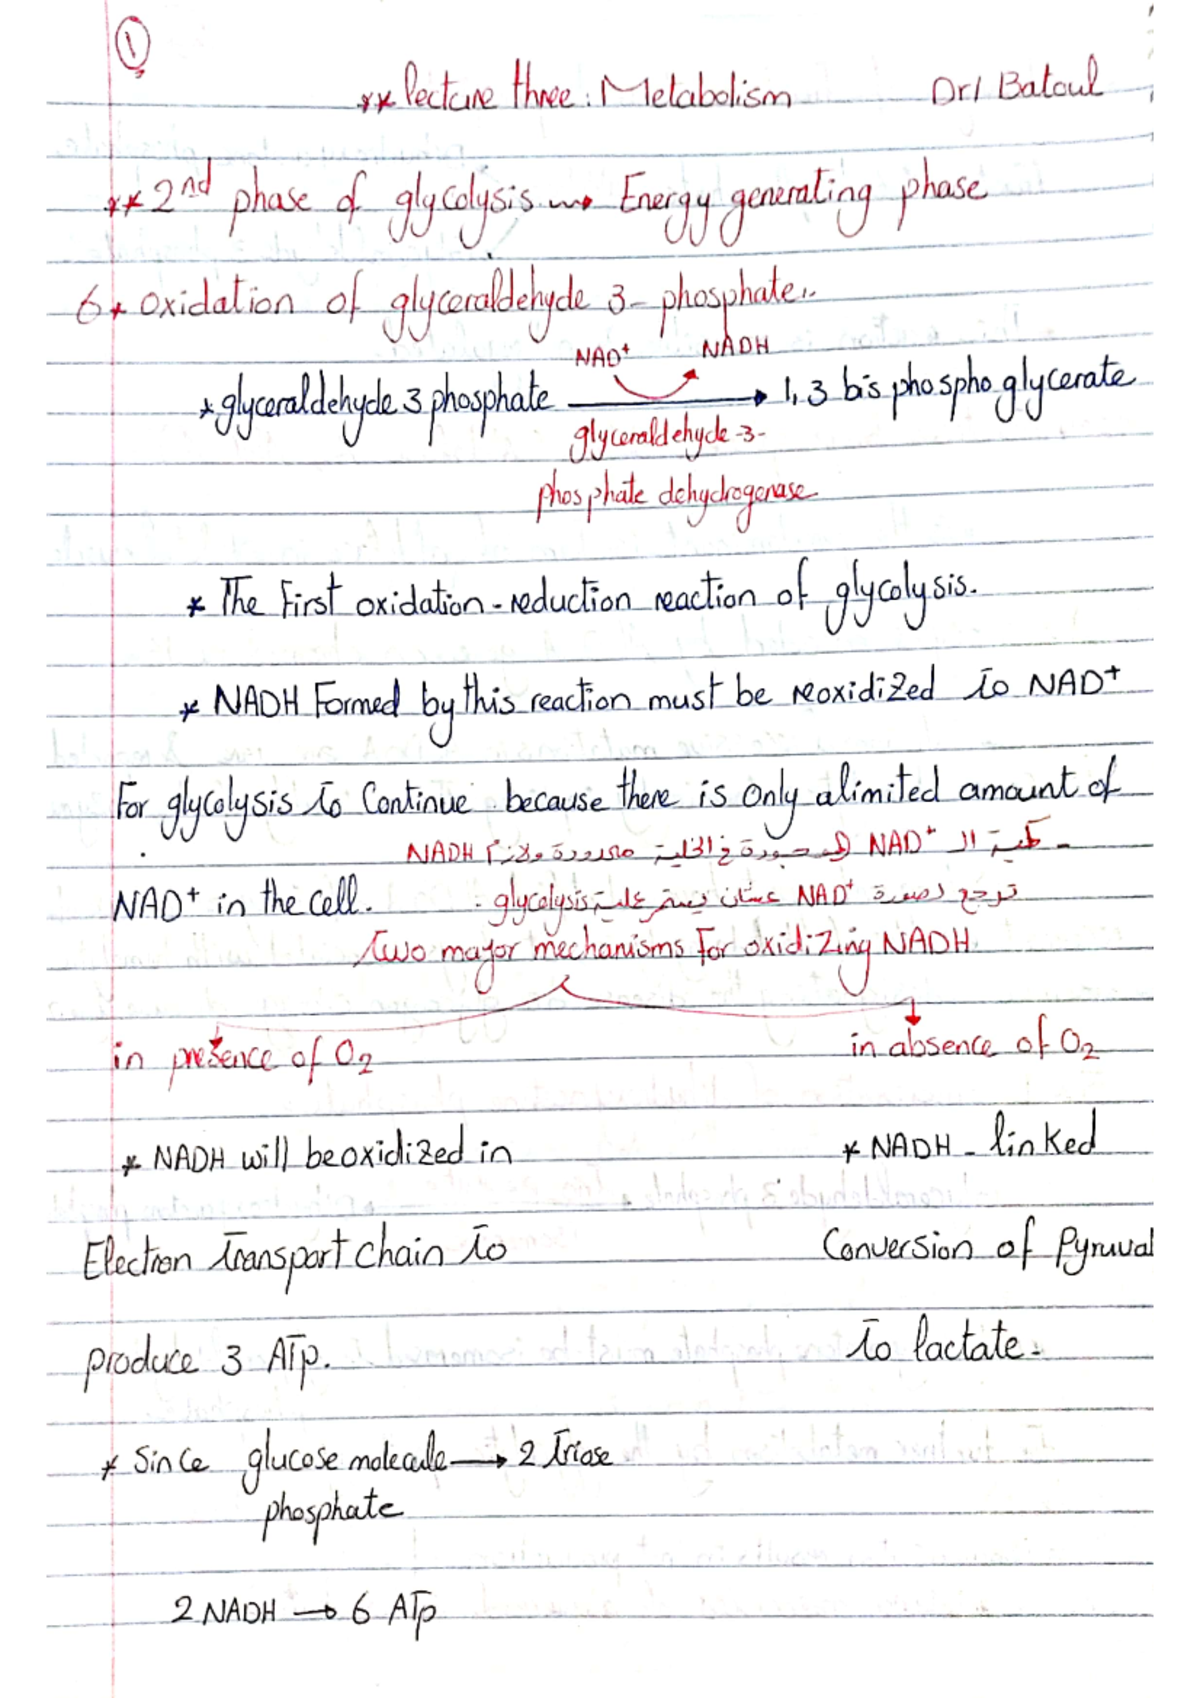 1
** lecture three : Metabolism Dr/ Batoul
** 2nd phase of glycolysis → Energy generating phase
6* oxidation of glyceraldehyde 3- phosphate..
NAD+ NADH
* glyceraldehyde 3 phosphate → 1,3 bis phospho glycerate
glyceraldehyde -3-
phosphate dehydrogenase
* The First oxidation - reduction reaction of glycolysis.
* NADH Formed by this reaction must be reoxidized to NAD+
For glycolysis to Continue because there is only a limited amount of
- كمية الـ NAD+ الموجودة في الخلية محدودة ولازم NADH
NAD+ in the cell.
ترجع لصورة NAD+ عشان يستمر عملية glycolysis.
Two major mechanisms For oxidizing NADH
in presence of O2 in absence of O2
* NADH will be oxidized in * NADH - linked
Electron Transport chain to Conversion of Pyruvat
produce 3 ATp. to lactate.
* Since glucose molecule → 2 Triose
phosphate
2 NADH → 6 ATp